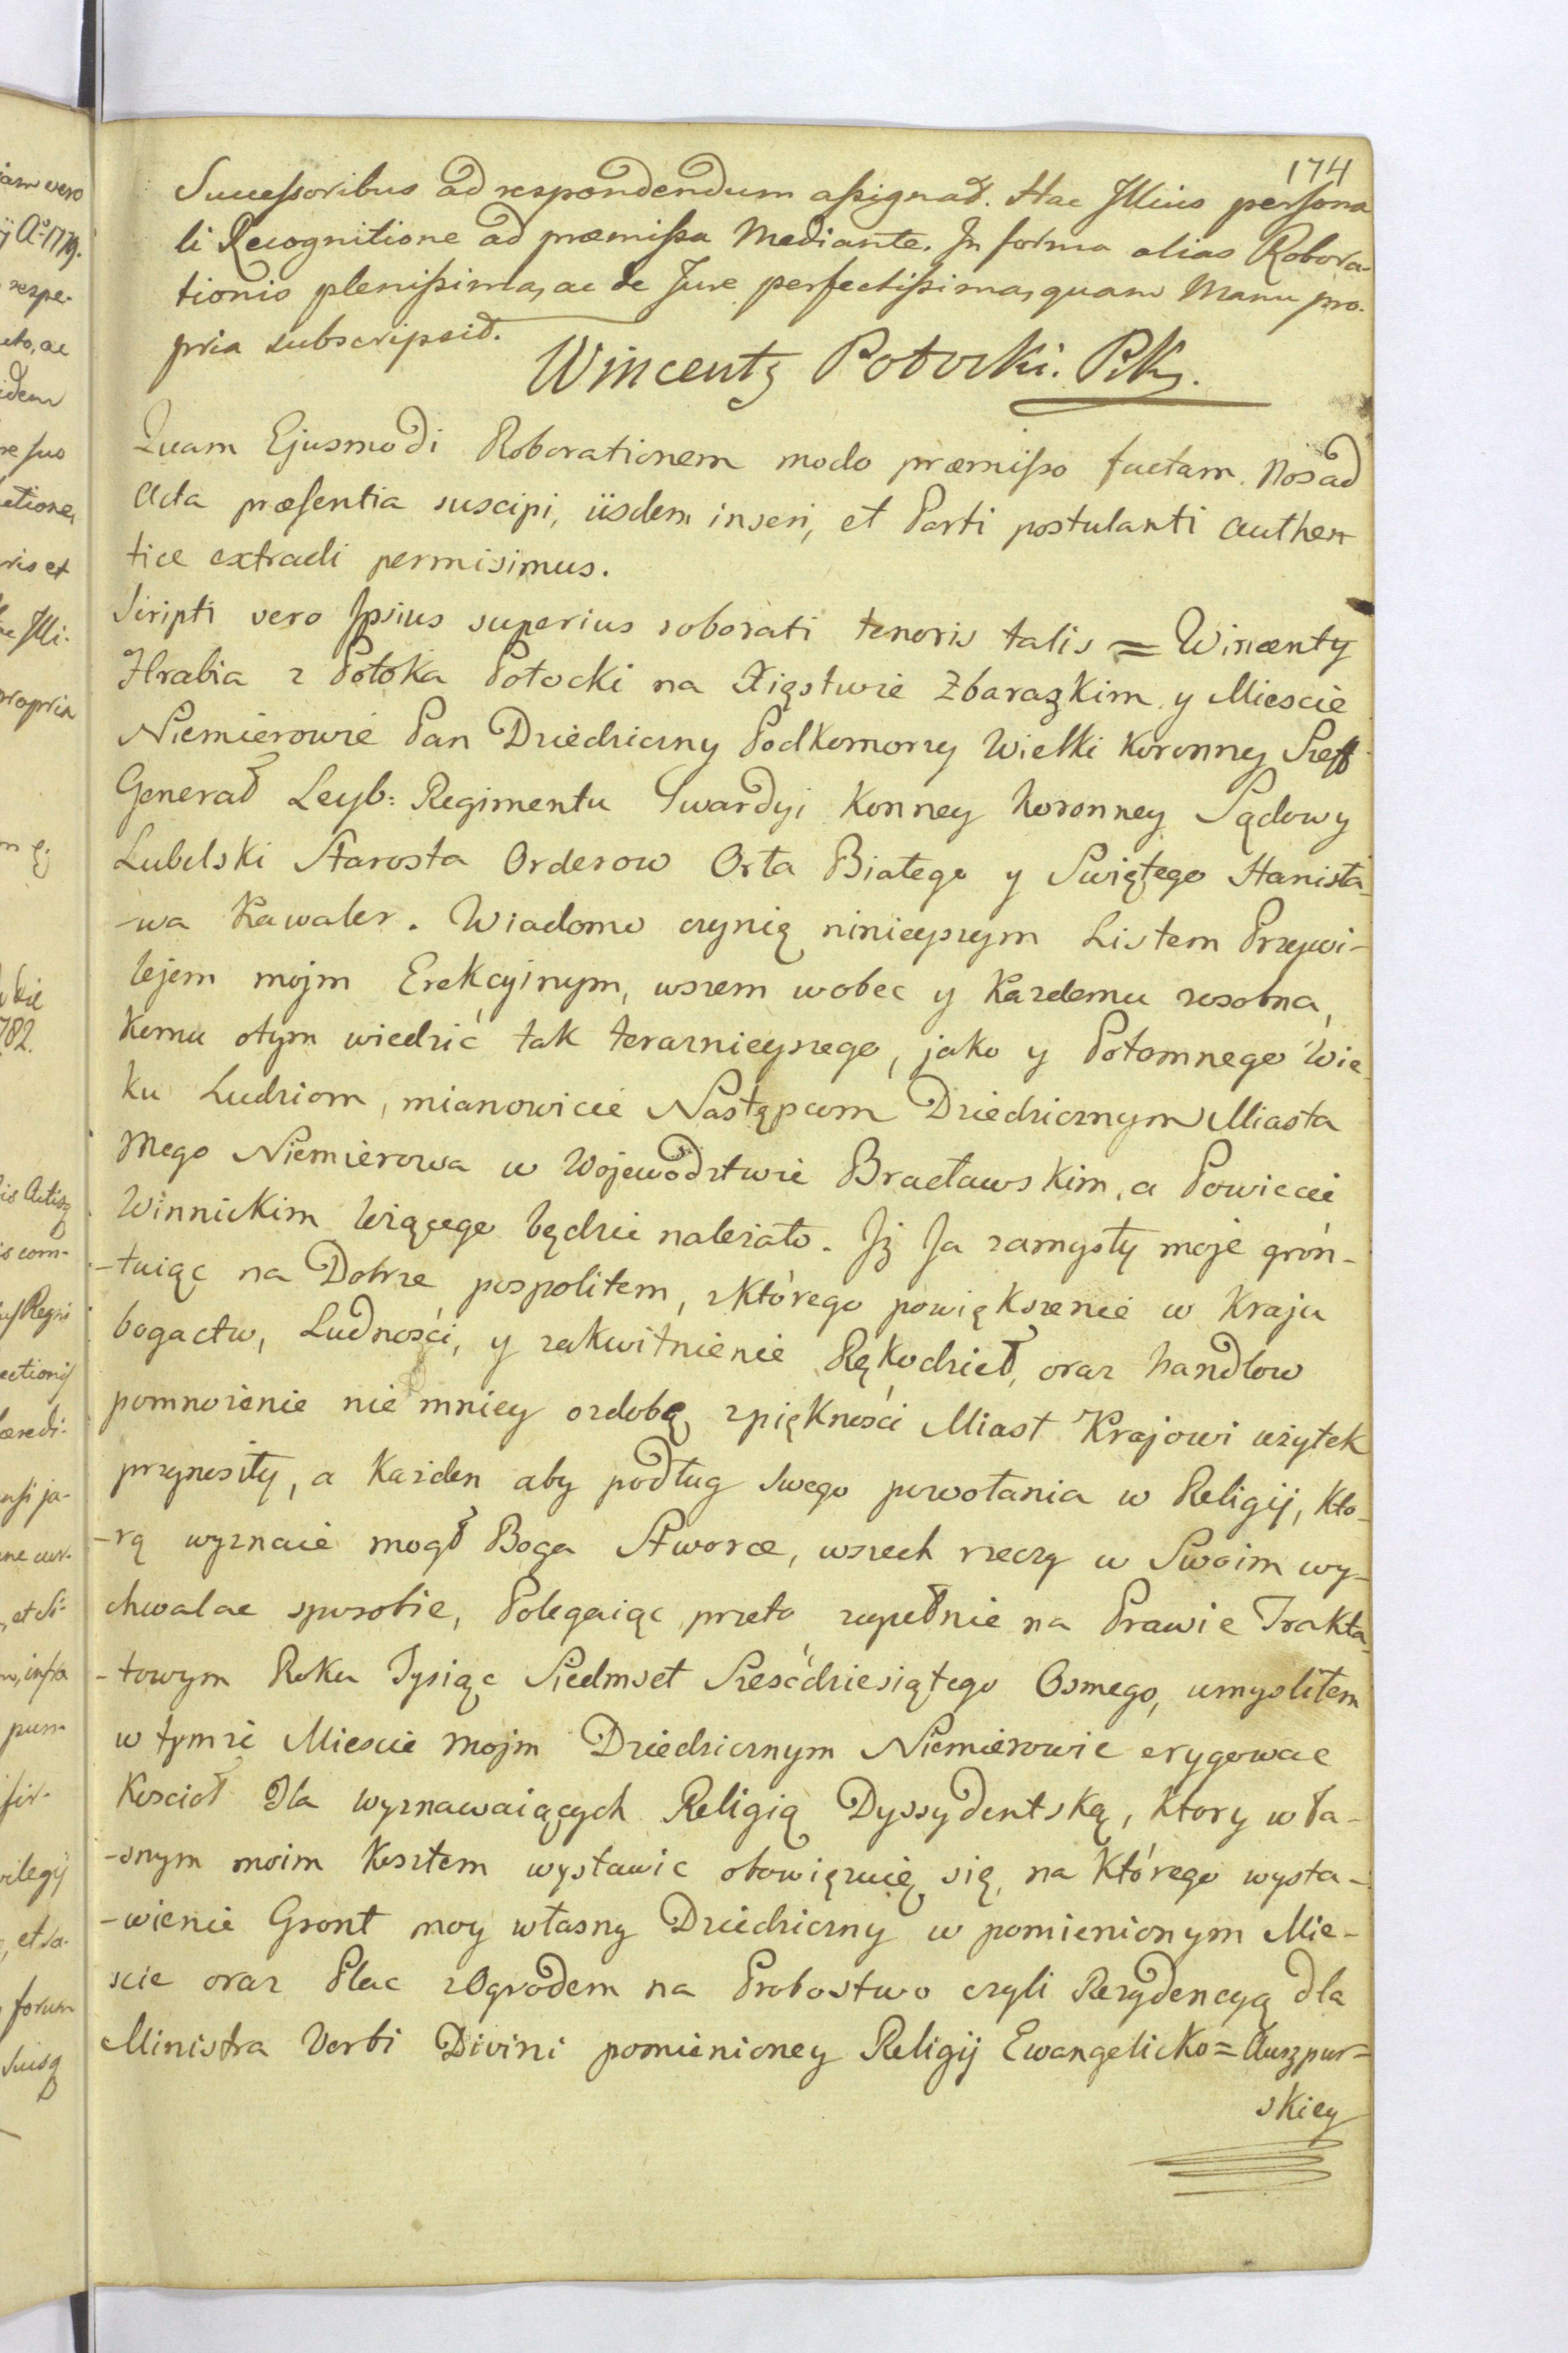 174
Successoribus ad respondendum assignat. Hac Illius persona
li Recognitione ad præmissa Mediante. In forma alias Robora-
tionis plenissima, ac de Jure perfectissima, quam Manu pro-
pria subscripsit.
Wincenty Potocki. PK.
Quam Ejusmodi Roborationem modo præmisso factam. Nos ad
Acta præsentia suscipi, iisdem inseri, et Parti postulanti authen
tice extradi permisimus.
Scripti vero Ipsius superius roborati tenoris talis = Wincenty
Hrabia z Potoka Potocki na Xięstwie Zbarazkim y Miescie
Niemierowie Pan Dziedziczny Podkomorzy Wielki Koronny Szeff
Generał Leyb: Regimentu Gwardyi Konney Koronney Sądowy
Lubelski Starosta Orderow Orła Białego y Swiętego Stanisła
-wa Kawaler. Wiadomo czynię ninieyszym Listem Przywi-
lejem mojm Erekcyjnym, wszem wobec y Kazdemu zosobna,
Komu otym wiedzić tak terarznieyszego, jako y Potomnego Wie
ku Ludziom, mianowicie Następcom Dziedzicznym Miasta
Mego Niemierowa w Wojewodztwie Bracławskim, a Powiecie
Winnickim leżącego będzie należało. Iż Ja zamysły moje grón-
-tuiąc na Dobrze pospolitem, z którego powiększenie w Kraju
bogactw, Ludnosći, y zakwitnienie Rękodzieł, oraz handlow
pomnożenie nie mniey ozdobą zpięknośći Miast Krajowi użytek
przynosiły, a Każden aby podług Swego powołania w Religij, Kto-
-rą wyznaie mogł Boga Stworce, wszech rzeczy w Swoim wy-
chwalac sposobie, Polegaiąc przeto zupełnie na Prawie Trakta
-towym Roku Tysiąc Siedmset Szesćdziesiątego Osmego, umyslilem
w tymże Miescie Mojm Dziedzicznym Niemierowie erygowac
Koscioł dla wyznawaiących Religią Dyssydentską, ktory wła-
-snym moim Kosztem wystawic obowięzuię się, na Którego wysta-
-wienie Gront moy własny Dziedziczny w pomienionym Mie-
scie oraz Plac z Ogrodem na Probostwo czyli Rezydencyą dla
Ministra Verbi Divini pomienioney Religij Ewangelicko=Auszpur=
skiey